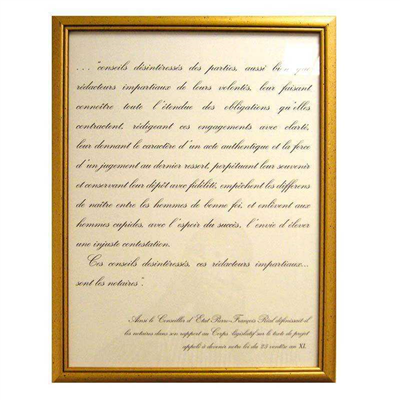 ... "conseils désintéressés des parties, aussi bien que
rédacteurs impartiaux de leurs volontés, leur faisant
connoître toute l'étendue des obligations qu'elles
contractent, rédigeant ces engagements avec clarté,
leur donnant le caractère d'un acte authentique et la force
d'un jugement au dernier ressort, perpétuant leur souvenir
et conservant leur dépôt avec fidélité, empêchent les différens
de naître entre les hommes de bonne foi, et enlèvent aux
hommes cupides, avec l'espoir du succès, l'envie d'élever
une injuste contestation.
Ces conseils désintéressés, ces rédacteurs impartiaux...
sont les notaires".
Ainsi le Conseiller d'Etat Pierre-François Réal définissait-il
les notaires dans son rapport au Corps législatif sur le texte de projet
appelé à devenir notre loi du 25 ventôse an XI.